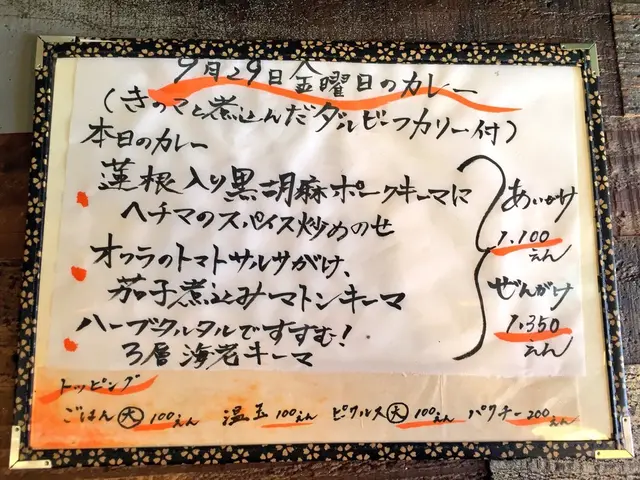 9月29日金曜日のカレー
(きのこと煮込んだダルビーフカリー付)
本日のカレー
蓮根入り黒胡麻ポークキーマに
ヘチマのスパイス炒めのせ
オクラのトマトサルサがけ、
茄子煮込みマトンキーマ
ハーブタルタルですすむ!
3層海老キーマ
あいがけ
1.100
えん
ぜんがけ
1.350
えん
トッピング
ごはん大100えん 温玉100えん ピクルス大100えん パクチー200えん